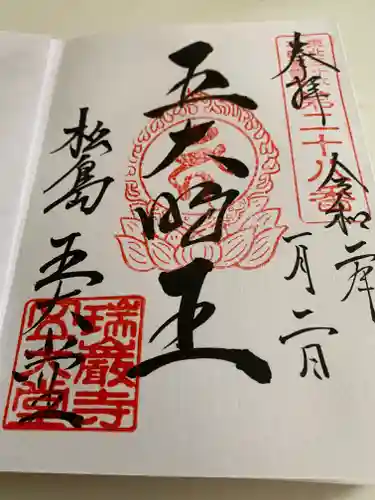 奉拝
令和二年
一月二日
五大明王
松島
五大堂
瑞巌寺
五大堂